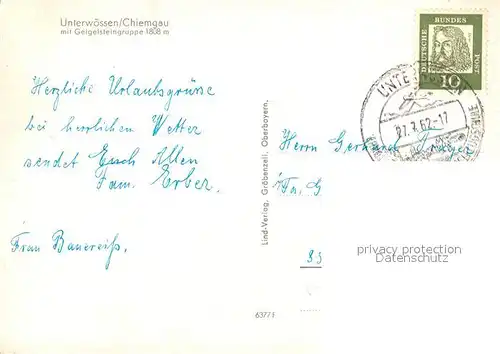 Unterwössen/Chiemgau
mit Geigelsteingruppe 1808 m
Herzliche Urlaubsgrüsse
bei herrlichen Wetter
sendet Euch Allen
Fam. Erber.
Frau Bauereiß.
Lind-Verlag, Gröbenzell, Oberbayern.
6377 F
DEUTSCHE BUNDES POST
10
27.7.62-17
Herrn Gerhard
Fa. G
85
privacy protection
Datenschutz